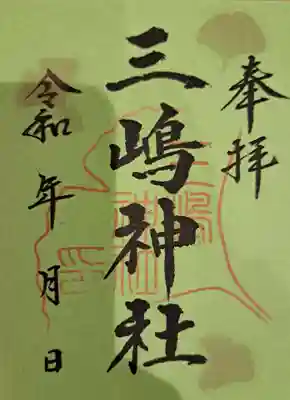 奉拝
三嶋神社
令和 年 月 日